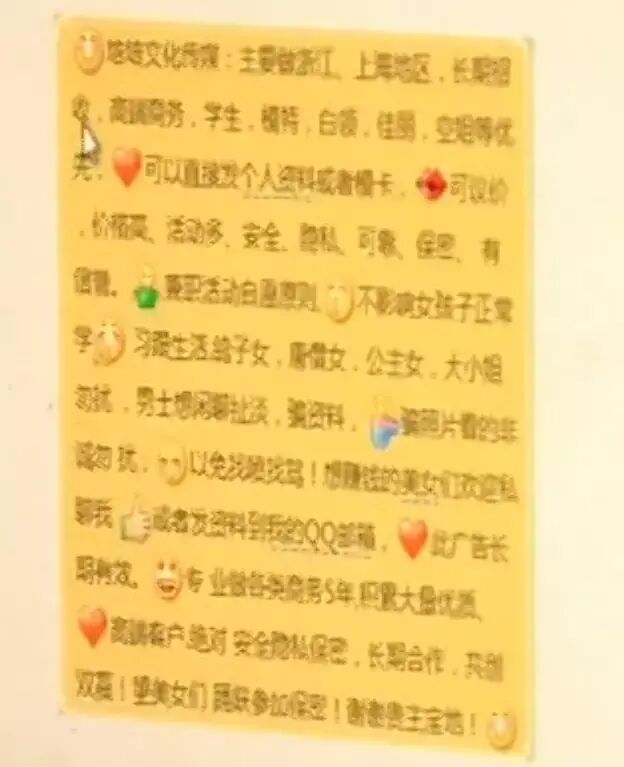 文化传媒：主要做浙江、上海地区，长期招
收，高端商务，学生，模特，白领，佳丽，空姐等优
先，可以直接发个人资料或者模卡，可议价
，价格高、活动多、安全、隐私、可靠、保密、有
信誉。兼职活动自愿原则，不影响女孩子正常
学习跟生活.鸽子女，唐僧女，公主女，大小姐
勿扰，男士想闲聊扯淡，骗资料，骗照片看的非
诚勿扰，以免找骂！想赚钱的美女们欢迎私
聊我或者发资料到我的QQ邮箱，此广告长
期有效。专业做各类商务5年,积累大量优质、
高端客户,绝对安全隐私保密，长期合作，共创
双赢！望美女们踊跃参加保密！谢谢贵主宝地！